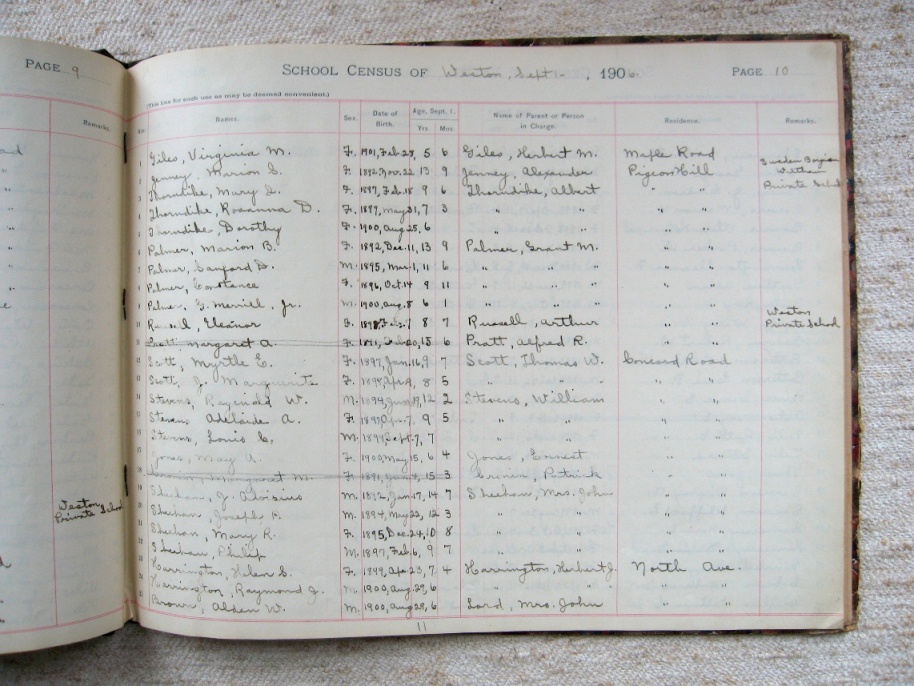 PAGE 9
Remarks.
Weston
Private School
SCHOOL CENSUS OF Weston, Sept 1 , 1906. PAGE 10
(This line for such use as may be deemed convenient.)
Names. Sex. Date of Birth. Age, Sept. 1. Yrs. Mos. Name of Parent or Person in Charge. Residence. Remarks.
1 Giles, Virginia M. F. 1901, Feb. 28, 5 6 Giles, Herbert M. Maple Road
2 Jenney, Marion S. F. 1892, Nov. 22 13 9 Jenney, Alexander Pigeon Hill
Waltham
3 Thorndike, Mary D. F. 1897, Feb. 18 9 6 Thorndike, Albert " " Private School
4 Thorndike, Rosanna D. F. 1899, May 31, 7 3 " " " "
5 Thorndike, Dorothy F. 1900, Aug 25, 6 " " " "
6 Palmer, Marion B. F. 1892, Dec. 11, 13 9 Palmer, Grant M. " "
7 Palmer, Sanford D. M. 1895, Mar. 1, 11 6 " " " "
8 Palmer, Constance F. 1896, Oct. 14 9 11 " " " "
9 Palmer, G. Merrill, Jr. M. 1900, Aug. 8 6 1 " " " "
10 Russell, Eleanor F. 1898, Feb. 8 7 Russell, Arthur " " Weston Private School
11 Pratt, Margaret A. F. 15 6 Pratt, Alfred R. " "
12 Scott, Myrtle E. F. 1897, Jan. 16, 9 7 Scott, Thomas W. Concord Road
13 Scott, J. Marguerite F. 8 5 " " " "
14 Stevens, Reginald W. M. 1894, 12 2 Stevens, William " "
15 Stevens Adelaide A. F. 9 5 " " " "
16 Stevens, Louis C. M. 1899, Sept. 7, 7 " " " "
17 Jones, May A. F. 1900, May 15, 6 4 Jones, Ernest " "
18 Margaret M. F. 1891, 15 3 Cronin, Patrick " "
19 Sheehan, J. Aloisius M. 1892, Jan. 17, 14 7 Sheehan, Mrs. John " "
20 Sheehan, Joseph F. M. 1894, May 23, 12 3 " " " "
21 Sheehan, Mary R. F. 1895, Dec. 24, 10 8 " " " "
22 Sheehan, Philip M. 1897, Feb. 6, 9 7 " " " "
23 Harrington, Helen S. F. 1899, Apr. 23, 7 4 Harrington, Herbert J. North Ave.
24 Harrington, Raymond J. M. 1900, Aug. 29, 6 " " " "
25 Brown, Alden W. M. 1900, Aug. 28, 6 Lord, Mrs. John " "
11